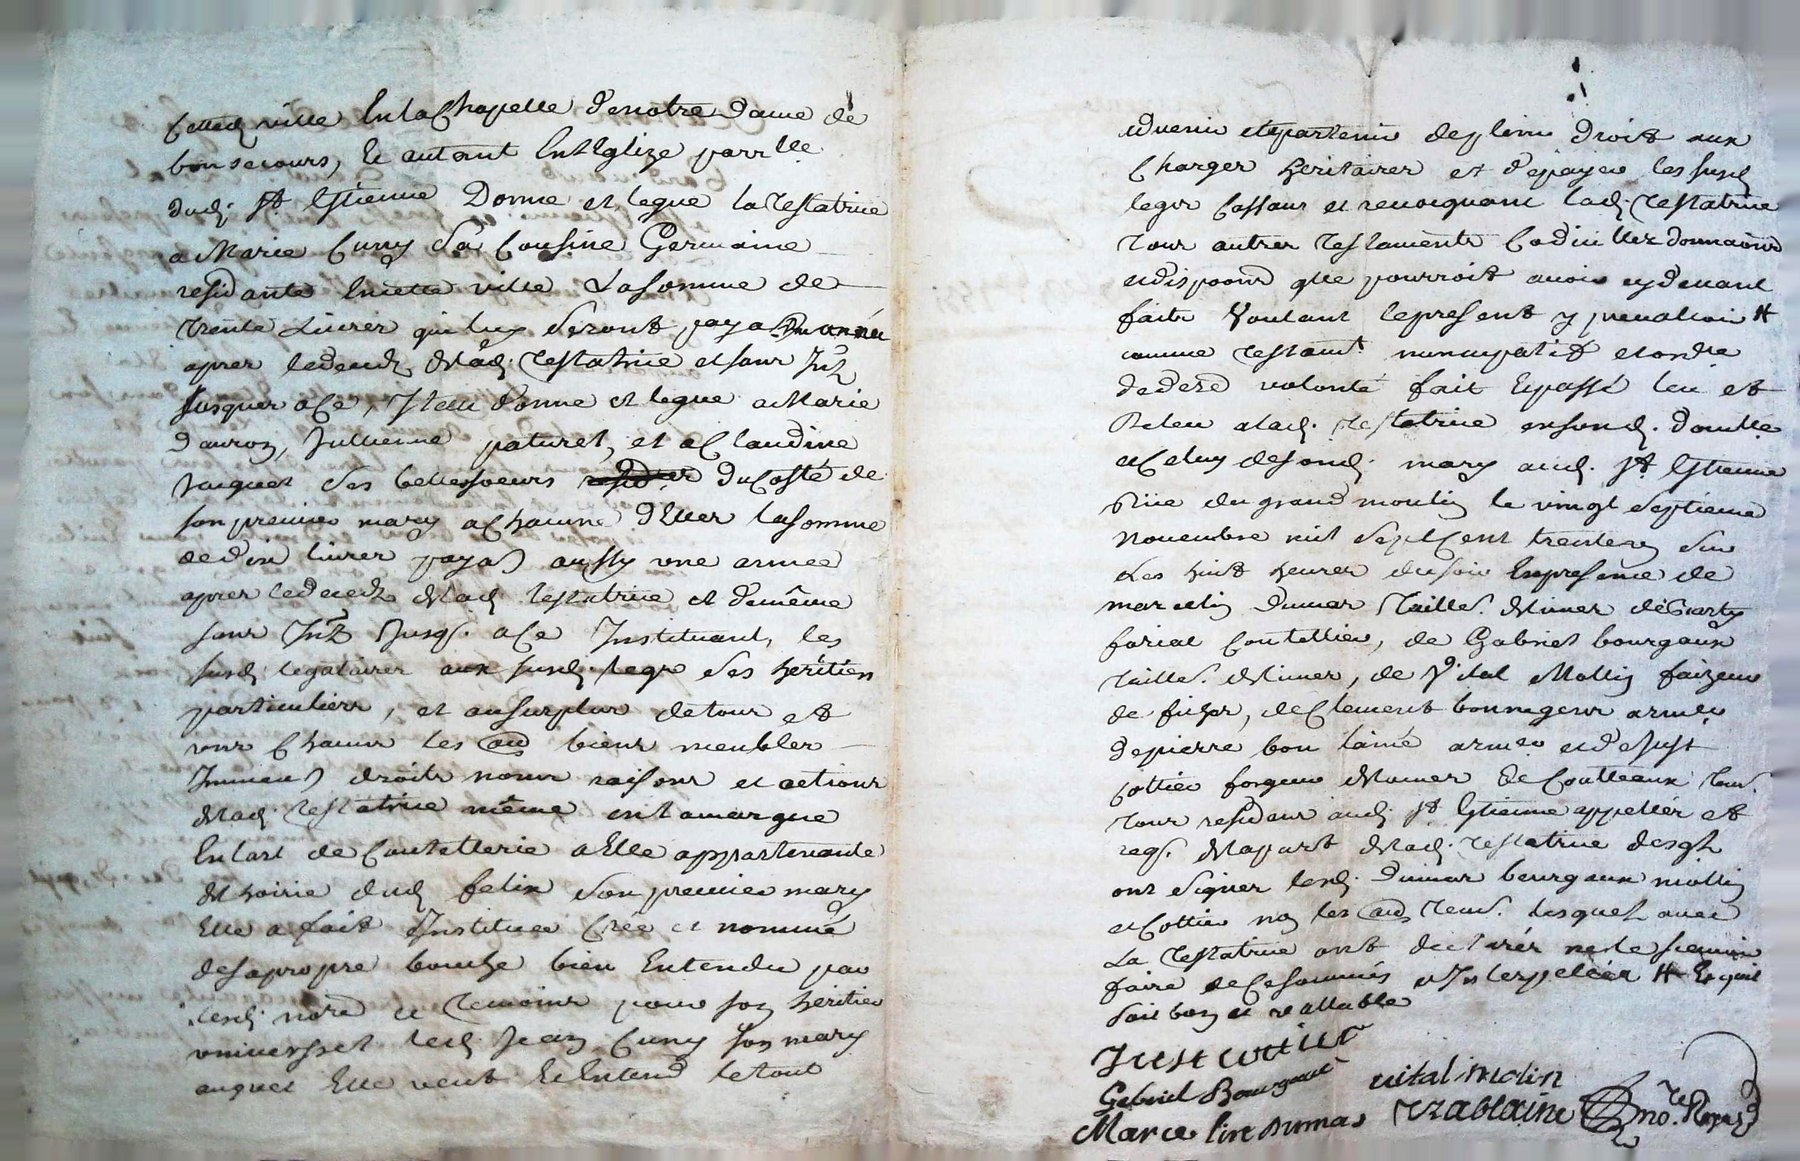 Cetted. ville En la Chapelle de notre dame de
bon secours, Et autant En l'Eglize parr.lle
dud. St. Estienne Donne et legue la testatrice
a Marie Cuny Sa Cousine Germaine
residante En cette ville La somme de
trente Livres qui luy seront payes une année
apres le deceds de lad. testatrice et sans
Jusques a ce, Item donne et legue a Marie
Jullienne paturel, et a Claudine
Jaques ses belles soeurs du Costé de
son premier mary a Chacune d'Elles la somme
de dix livres payes aussy une année
apres le deceds de lad. testatrice et de même
sans Jusq. a ce Instituant, les
susd. legataires aux susd. legs ses heritiers
particuliers, et au surplus de tous et
uns Chacuns les biens meubles
Immeubles droits noms raisons et actions
de lad. testatrice même en la marque
En l'art de Coutellerie a Elle appartenante
de hoirie dud. felix son premier mary
Elle a fait Institué Crée et nommé
de sa propre bouche bien Entendu par
lesd. nore et temoins pour son heritier
universsel led. Jean Cuny son mary
auquel Elle veut Et Entend le tout
advenir et apartenir de plein droit aux
Charges heritaires et de payer les susd.
legs Cassant et revoquant lad. testatrice
tous autres testaments Codicilles donnaons
et dispoons qlle pourroit avoir cy devant
faits Voulant le present y prevaloir #
comme testamt. nuncupatif et ordre
de dere volonté fait Et passé leu et
Releu a lad. testatrice en son d. domlle
et Celuy de sond. mary aud. St. Estienne
Rüe du grand moulin le vingt septieme
Novembre mil sept Cent trente sur
Les huit heures du soir En presence de
marcelin dumas taille. de limes
coutellier, de Gabriel bourgaux
taille. de limes, de Vital Mollin faizeur
de fiches, de Clement armeu.
de pierre armeu. et de Just
Cottier forgeur de lames de Coutteaux tem.
tous residans aud. St. Estienne appellés et
reqs. de la part de lad. testatrice desqls
ont signés lesd. dumas bourgaux mollin
et Cottier non les au. tem. lesquels avec
La testatrice ont declarés ne le sçavoir
faire de Ce sommés et Interpellés # Et quil
soit bon et vallable
Just cottier
Gabriel Bourgaux
vital molin
Marce line dumas
no.re Royal